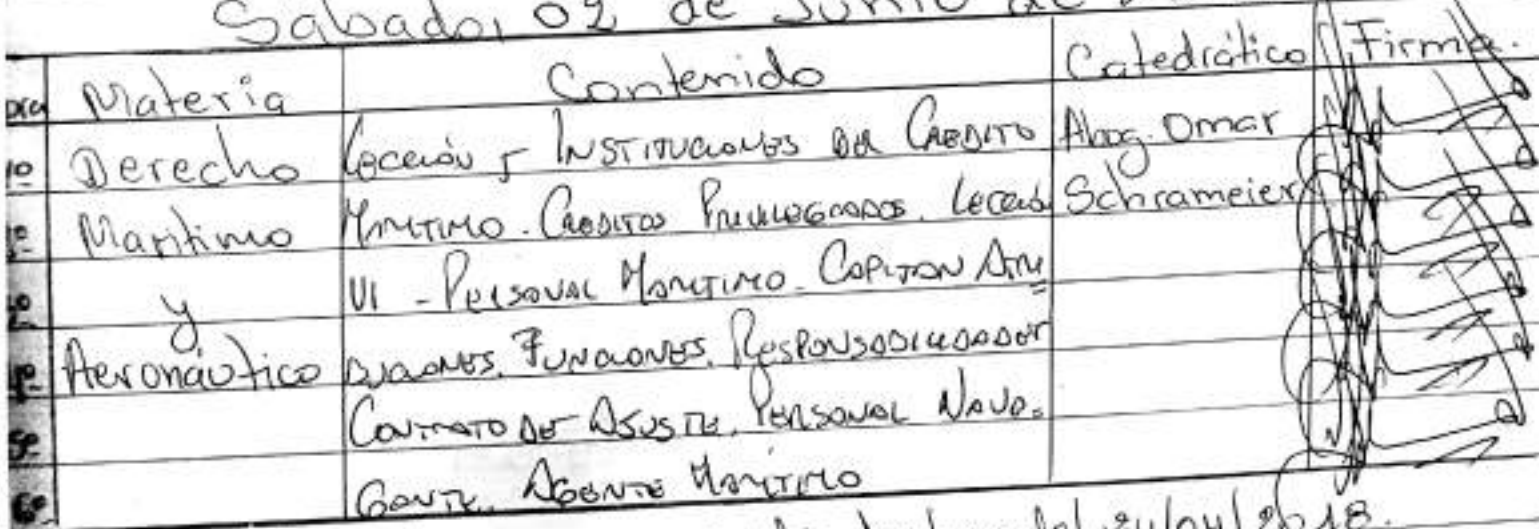 Sabado, 02 de Junio de
Materia Contenido Catedrático Firma.
1º Derecho Lección 5 - INSTITUCIONES DEL CREDITO Abog. Omar
Marítimo MARITIMO. CREDITOS PRIVILEGIADOS. LECCION Schrameier
y VI - PERSONAL MARITIMO. CAPITAN ATRI
4º Aeronáutico BUCIONES. FUNCIONES. RESPONSABILIDADES
5º CONTRATO DE AJUSTE. PERSONAL NAVE=
6º GANTE. AGENTE MARITIMO
del 21/04/2018.